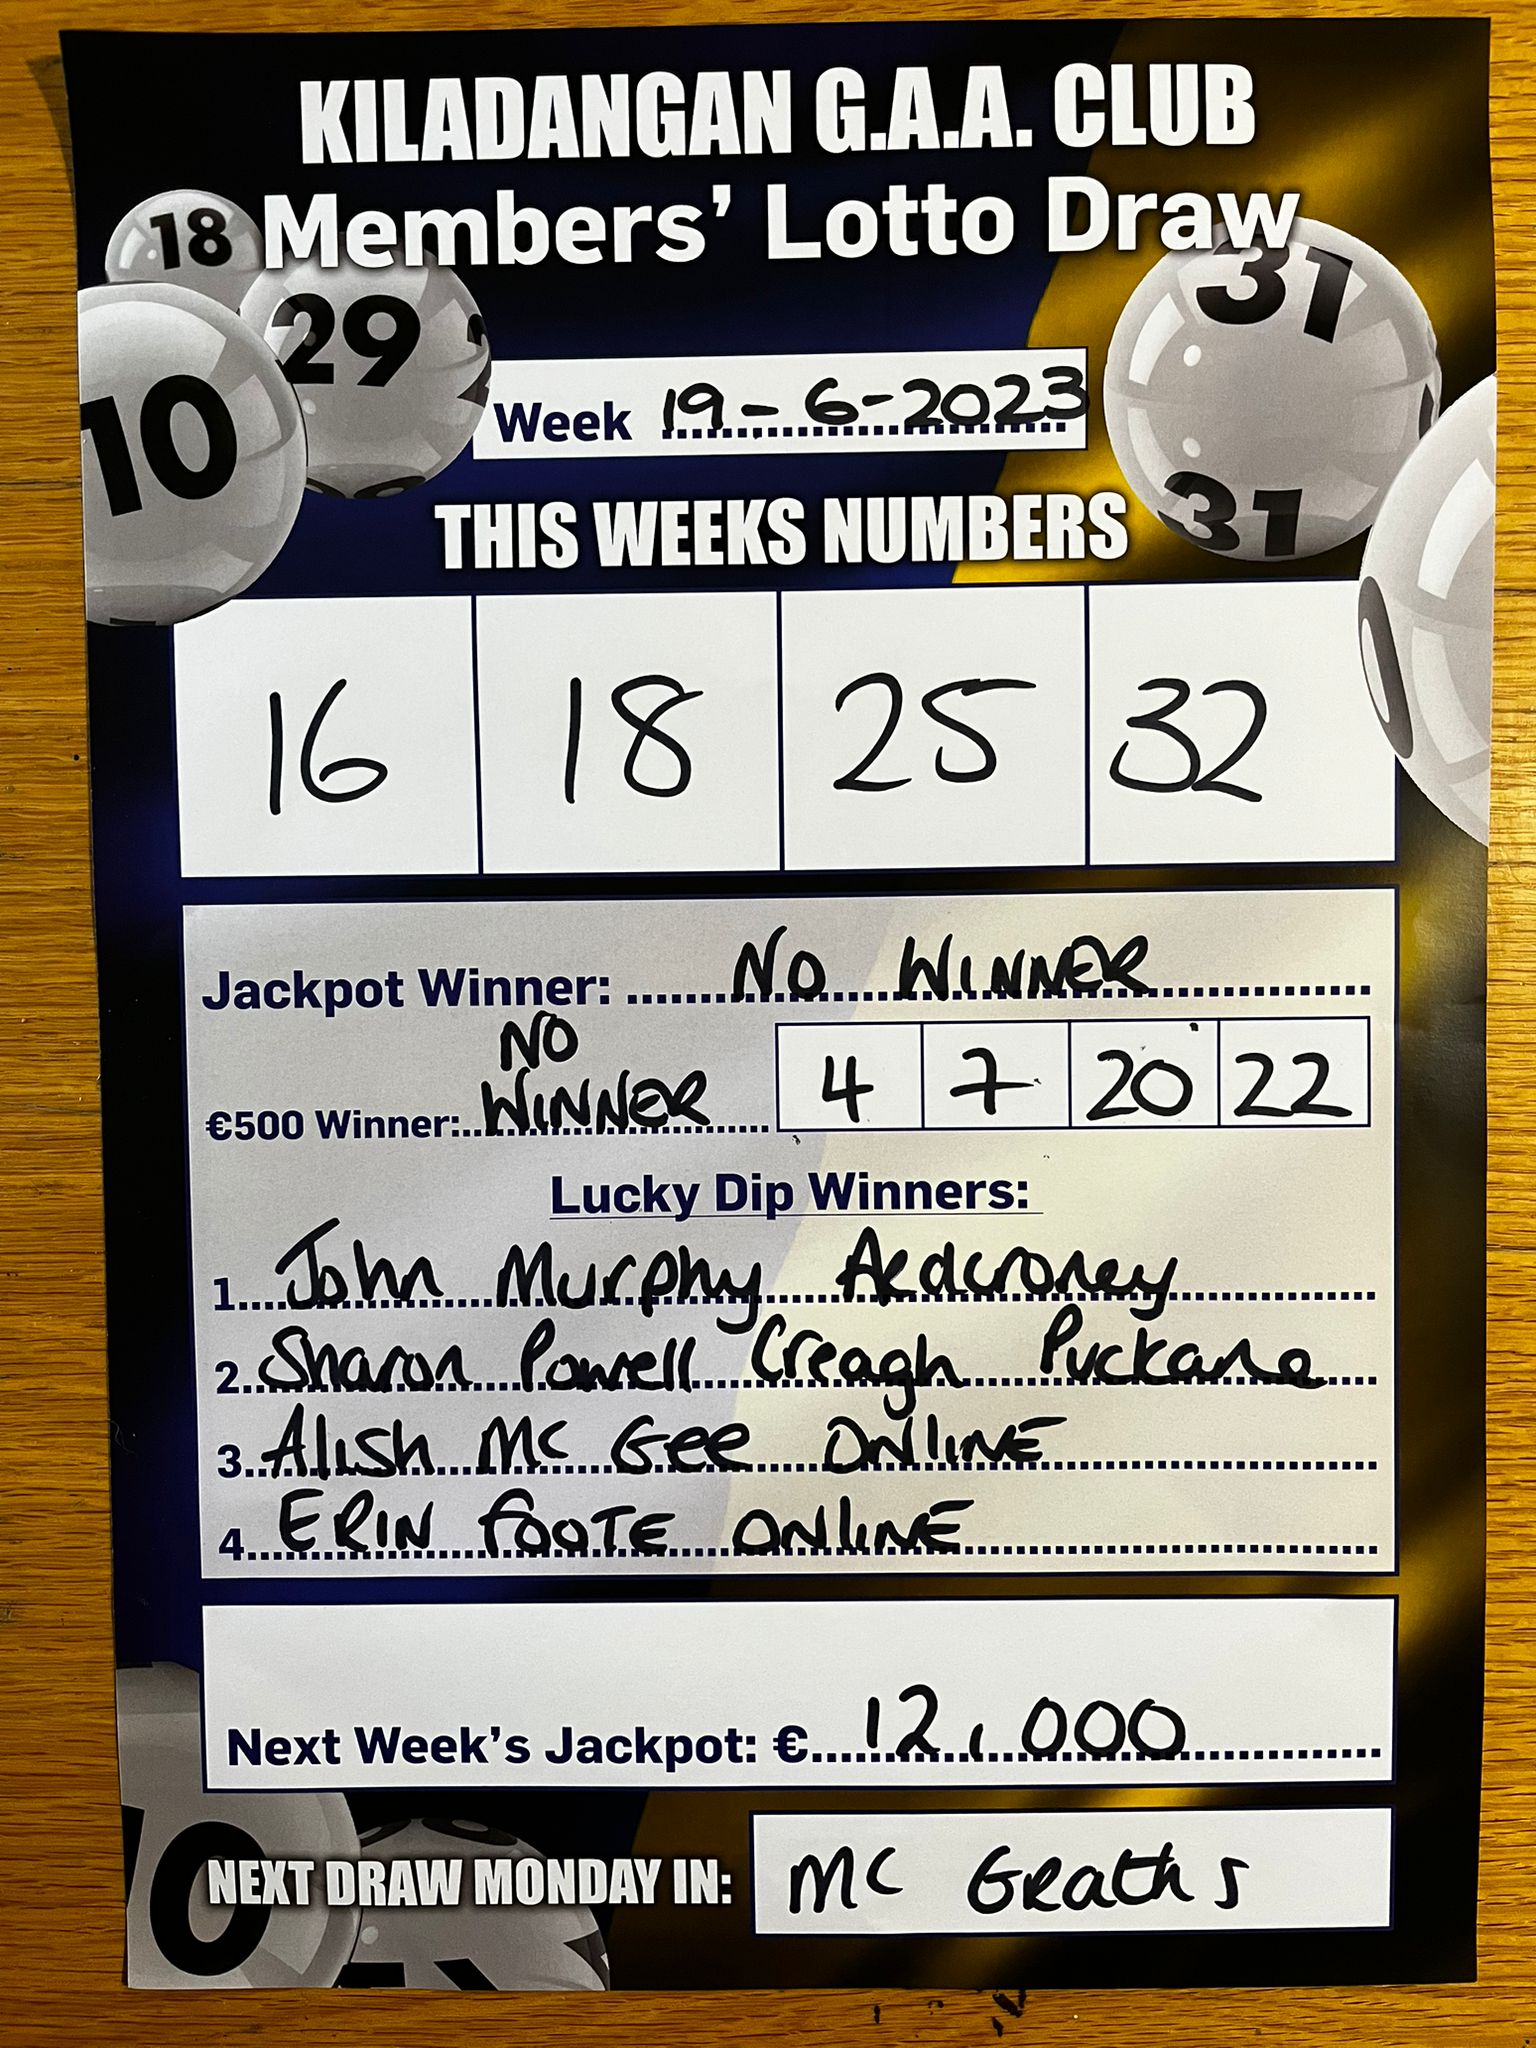 KILADANGAN G.A.A. CLUB
Members' Lotto Draw
18
29
10
31
31
Week 19-6-2023
THIS WEEKS NUMBERS
16 18 25 32
Jackpot Winner: NO WINNER
€500 Winner: NO WINNER 4 7 20 22
Lucky Dip Winners:
1. John Murphy Ardcroney
2. Sharon Powell Creagh Puckane
3. Alish Mc Gee ONLINE
4. ERIN FOOTE ONLINE
Next Week's Jackpot: € 12,000
NEXT DRAW MONDAY IN: MC Graths